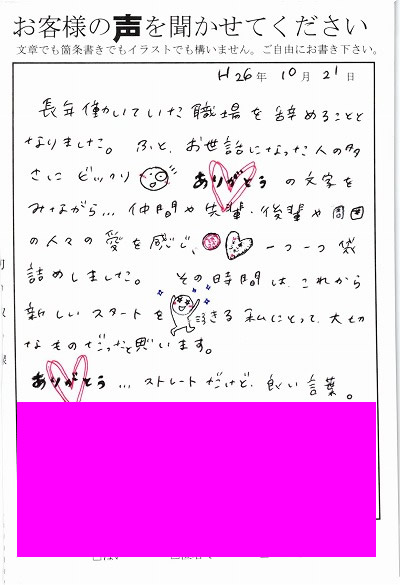 お客様の声を聞かせてください
文章でも箇条書きでもイラストでも構いません。ご自由にお書き下さい。
H26年 10月 21日
長年働いていた職場を辞めることと
なりました。 ふと、お世話になった人の多
さに ビックリ ありがとう の文字を
みながら… 仲間や先輩・後輩や周囲
の人々の愛を感じ、 一つ一つ袋
詰めしました。 その時間は、これから
新しいスタートを 切る私にとって、大切
なものだったと思います。
ありがとう … ストレートだけど、良い言葉。